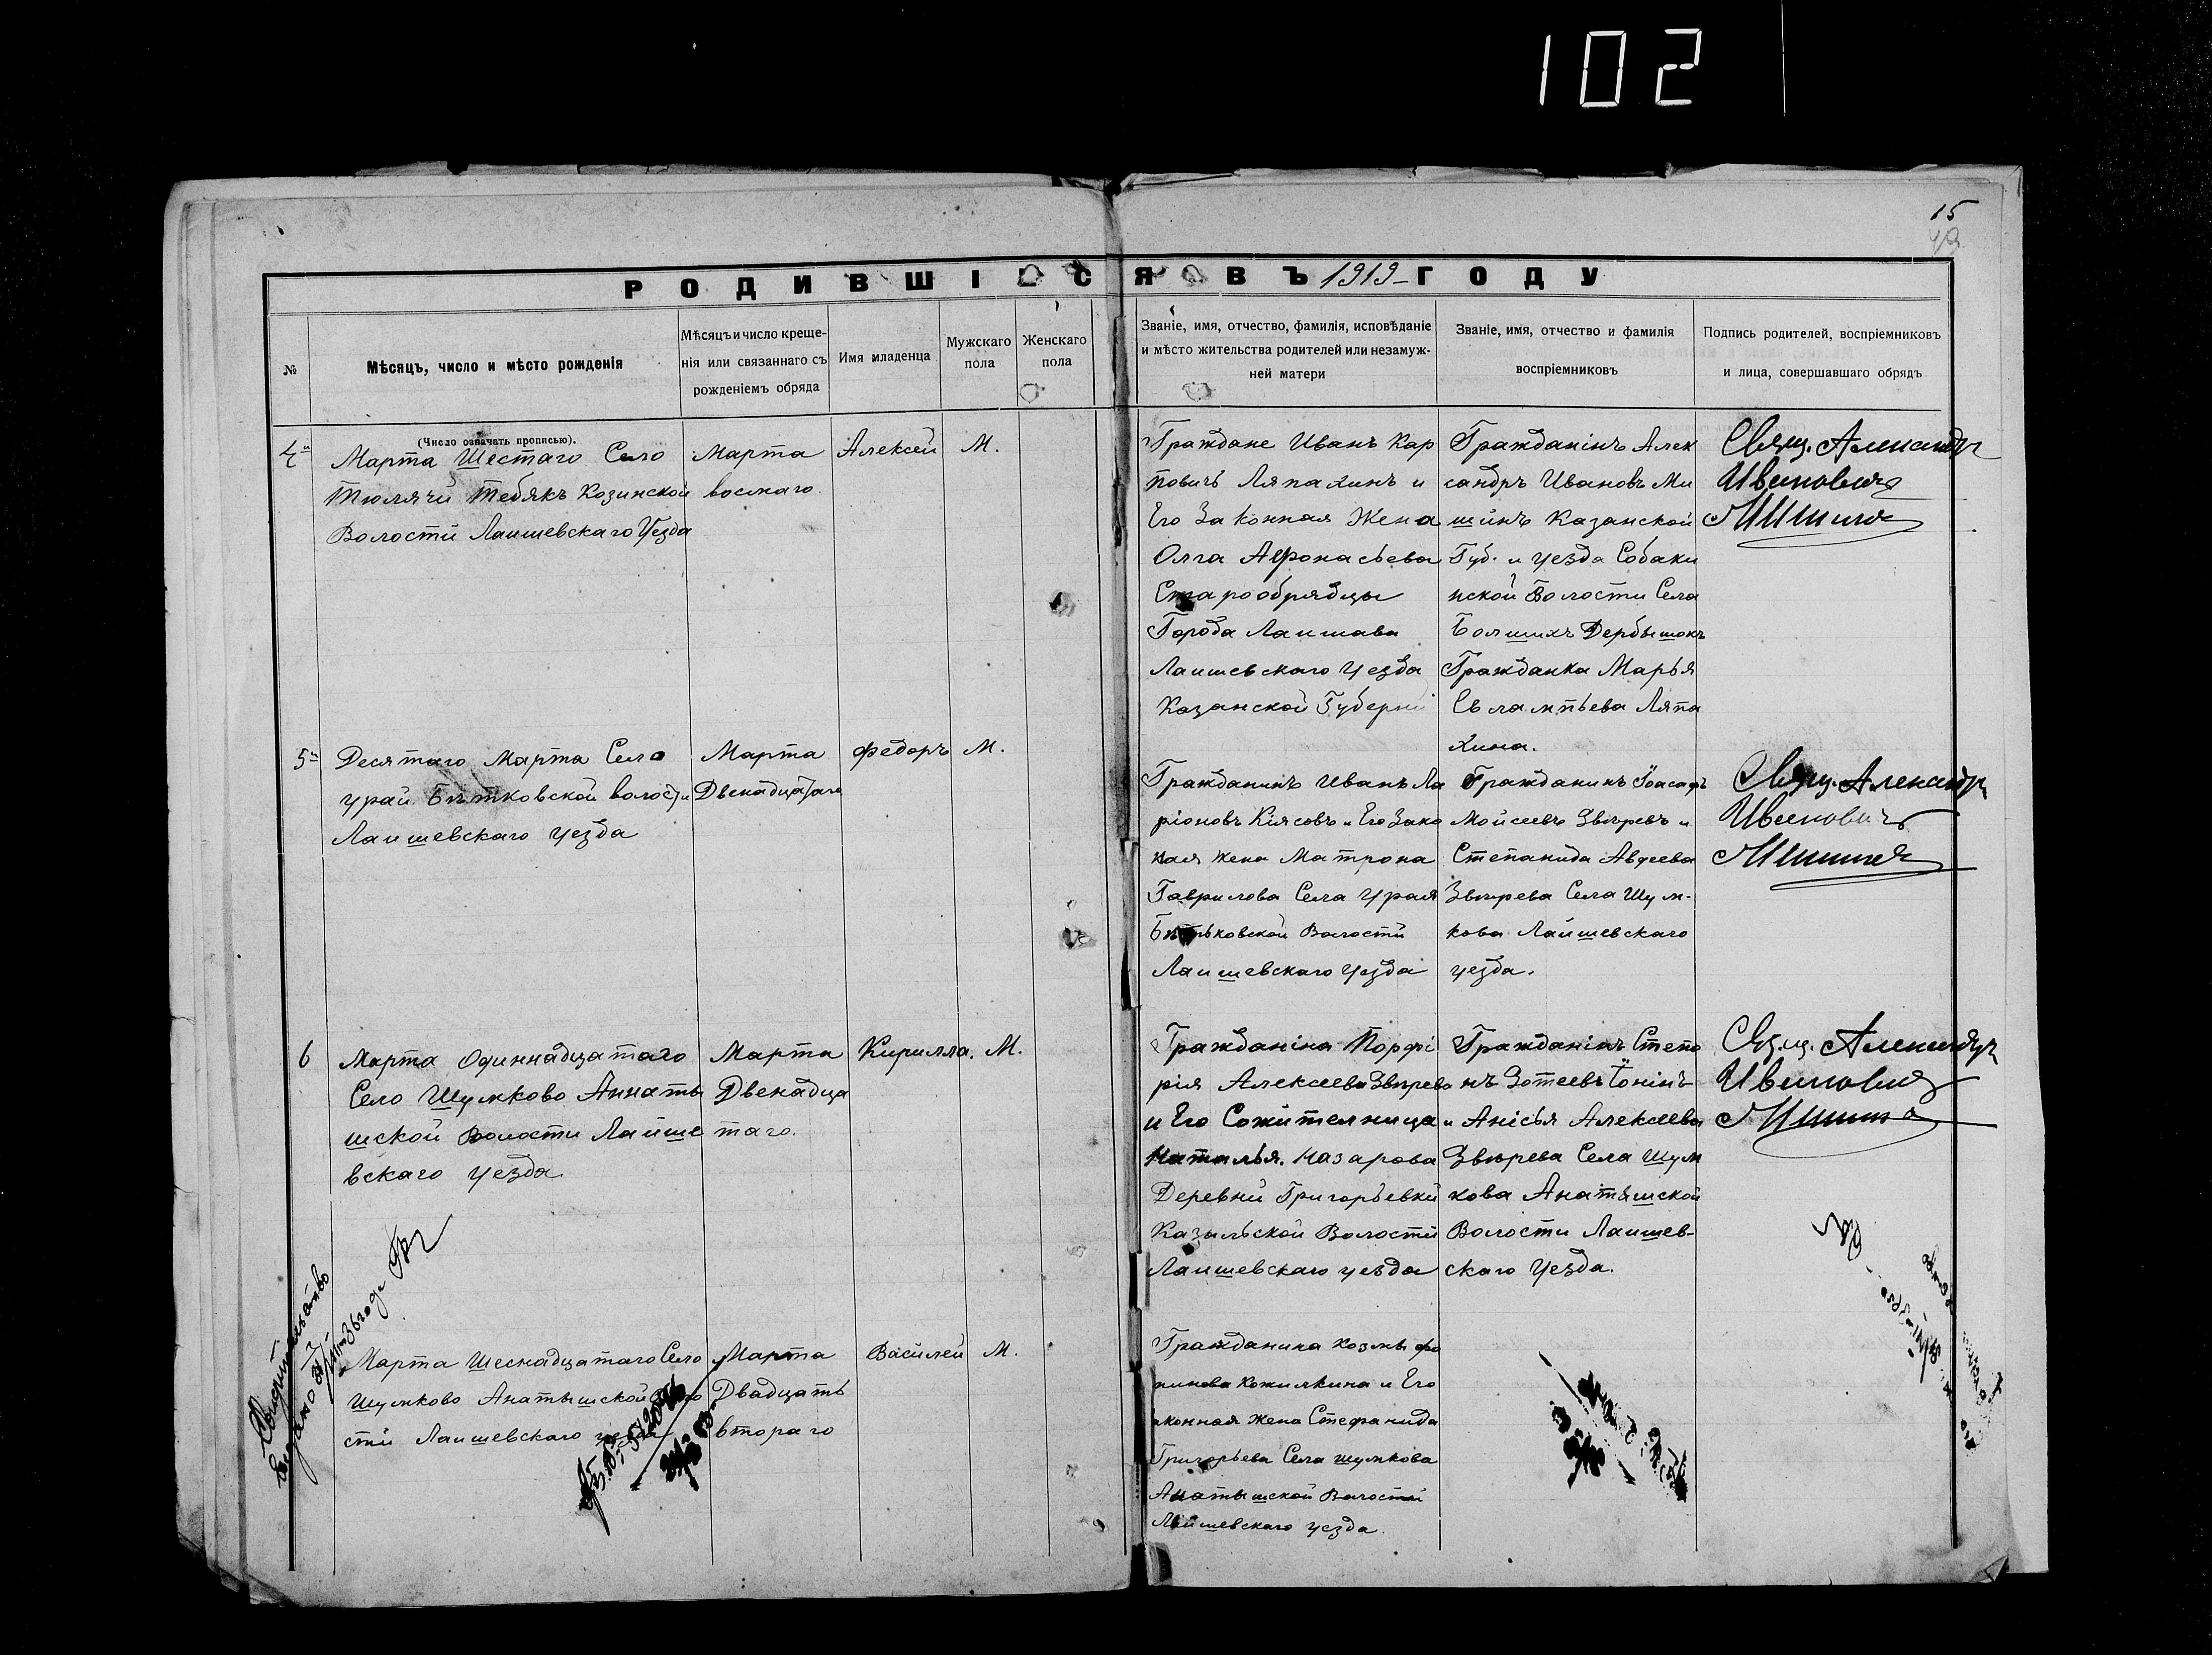 102
15
РОДИВШІЕСЯ ВЪ 1919 ГОДУ
№
Мѣсяцъ, число и мѣсто рожденія
Мѣсяцъ и число креще-
нія или связаннаго съ
рожденіемъ обряда
Имя младенца
Мужскаго
пола
Женскаго
пола
Званіе, имя, отчество, фамилія, исповѣданіе
и мѣсто жительства родителей или незамуж-
ней матери
Званіе, имя, отчество и фамилія
воспріемниковъ
Подпись родителей, воспріемниковъ
и лица, совершавшаго обрядъ
(Число означать прописью).
4й
Марта Шестаго Село
Тюлячи Тебякъ Козинской
Волости Лаишевскаго Уезда
Марта
восмаго
Алексей
М.
Граждане Иванъ Кар
повичъ Ляпахинъ и
Его Законная Жена
Олга Афонасьева
Старообрядцы
Города Лаишава
Лаишевскаго Уезда
Казанской Губерни
Гражданінъ Алек
сандръ Ивановъ Ми
шинъ Казанской
Губ. и уезда Собаки
нской Волости Села
Болшихъ Дербышокъ
Гражданка Марья
Евлампьева Ляпа
хина.
Свящ. Александр
Иванович
Мишин
5й
Десятаго Марта Село
Урай Бѣтковской волости
Лаишевскаго Уезда
Марта
Двенадцатаго
Федоръ
М.
Гражданинъ Иванъ Ла
ріоновъ Кіясовъ и Его Зако
ная жена Матрона
Гаврилова Села Урая
Бѣтьковской Волости
Лаишевскаго Уезда
Гражданинъ Іоасафъ
Мойсеевъ Звѣревъ и
Степанида Авдеева
Звѣрева Села Шум-
кова Лаишевскаго
уезда.
Свящ. Александр
Иванович
Мишин
6
Марта Одиннадцатаго
Село Шумково Аннаты
шской Волости Лаише
вскаго Уезда
Марта
Двенадца
таго.
Кирилла.
М.
Гражданіна Порфі
рія Алексеева Звѣрева
и Его Сожителница
Наталья. Назарова
Деревни Григорьевки
Казыльской Волости
Лаишевскаго уезда
Гражданінъ Степа
нъ Зотеевъ Іонінъ
и Анісья Алексеева
Звѣрева Села Шум
кова Анатышской
Волости Лаишев-
скаго Уезда.
Свящ. Александр
Иванович
Мишин
Свидительство
выдано
Марта Шеснадцатаго Село
Шумково Анатышской Воло
сти Лаишевскаго уезда
Марта
Двадцать
втораго
Василей
М.
Гражданина Козмы
Кожилкина и Его
аконная Жена Стефанида
Григорьева Села Шумкова
Анатышской Волости
Лаишевскаго уезда.